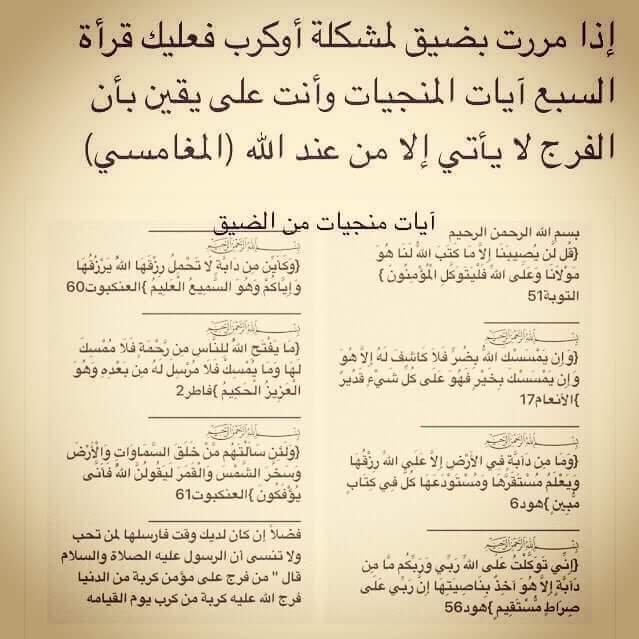 إذا مررت بضيق لمشكلة أوكرب فعليك قرأة
السبع آيات المنجيات وأنت على يقين بأن
الفرج لا يأتي إلا من عند الله (المغامسي)
آيات منجيات من الضيق
بسم الله الرحمن الرحيم
{قُل لَّن يُصِيبَنَا إِلاَّ مَا كَتَبَ اللّهُ لَنَا هُوَ
مَوْلاَنَا وَعَلَى اللّهِ فَلْيَتَوَكَّلِ الْمُؤْمِنُونَ }
التوبة51
بسم الله الرحمن الرحيم
{وَإِن يَمْسَسْكَ اللّهُ بِضُرٍّ فَلاَ كَاشِفَ لَهُ إِلاَّ هُوَ
وَإِن يَمْسَسْكَ بِخَيْرٍ فَهُوَ عَلَى كُلِّ شَيْءٍ قَدُيرٌ
}الأنعام17
بسم الله الرحمن الرحيم
{وَمَا مِن دَآبَّةٍ فِي الأَرْضِ إِلاَّ عَلَى اللّهِ رِزْقُهَا
وَيَعْلَمُ مُسْتَقَرَّهَا وَمُسْتَوْدَعَهَا كُلٌّ فِي كِتَابٍ
مُّبِينٍ }هود6
بسم الله الرحمن الرحيم
{إِنِّي تَوَكَّلْتُ عَلَى اللّهِ رَبِّي وَرَبِّكُم مَّا مِن
دَآبَّةٍ إِلاَّ هُوَ آخِذٌ بِنَاصِيَتِهَا إِنَّ رَبِّي عَلَى
صِرَاطٍ مُّسْتَقِيمٍ }هود56
بسم الله الرحمن الرحيم
{وَكَأَيِّن مِن دَابَّةٍ لَا تَحْمِلُ رِزْقَهَا اللَّهُ يَرْزُقُهَا
وَإِيَّاكُمْ وَهُوَ السَّمِيعُ الْعَلِيمُ }العنكبوت60
بسم الله الرحمن الرحيم
{مَا يَفْتَحِ اللَّهُ لِلنَّاسِ مِن رَّحْمَةٍ فَلَا مُمْسِكَ
لَهَا وَمَا يُمْسِكْ فَلَا مُرْسِلَ لَهُ مِن بَعْدِهِ وَهُوَ
الْعَزِيزُ الْحَكِيمُ }فاطر2
بسم الله الرحمن الرحيم
{وَلَئِن سَأَلْتَهُم مَّنْ خَلَقَ السَّمَاوَاتِ وَالْأَرْضَ
وَسَخَّرَ الشَّمْسَ وَالْقَمَرَ لَيَقُولُنَّ اللَّهُ فَأَنَّى
يُؤْفَكُونَ }العنكبوت61
فضلاً إن كان لديك وقت فارسلها لمن تحب
ولا تنسى أن الرسول عليه الصلاة والسلام
قال " من فرج على مؤمن كربة من الدنيا
فرج الله عليه كربة من كرب يوم القيامه